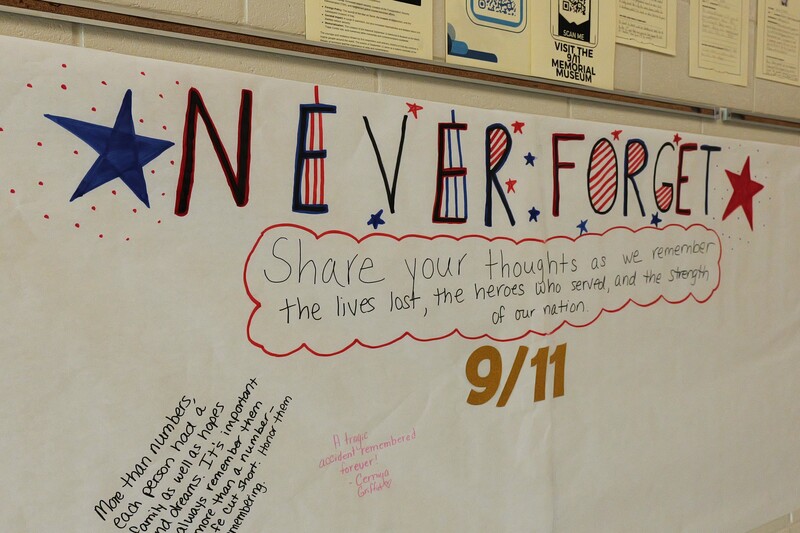 SCAN ME
VISIT THE
9/11
MEMORIAL
MUSEUM
NEVER FORGET
Share your thoughts as we remember
the lives lost, the heroes who served, and the strength
of our nation.
9/11
More than numbers,
each person had a
family as well as hopes
nd dreams. It's important
always remember them
more than a number—
fe cut short. Honor them
membering.
A tragic
accident remembered
forever!